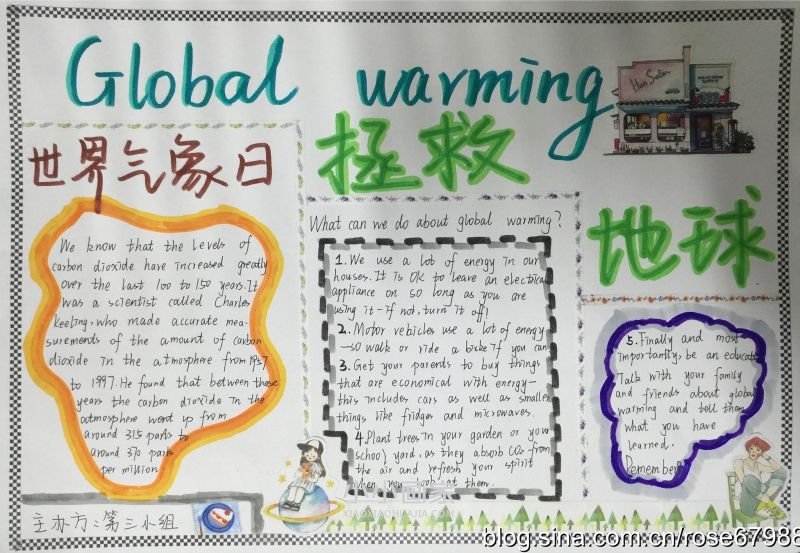 Global warming
世界气象日
拯救
地球
Hair Salon
We know that the levels of
carbon dioxide have increased greatly
over the last 100 to 150 years. It
was a scientist called Charles
Keeling, who made accurate mea-
surements of the amount of carbon
dioxide in the atmosphere from 1957
to 1997. He found that between these
years the carbon dioxide in the
atmosphere went up from
around 315 parts to
around 370 parts
per million.
What can we do about global warming?
1. We use a lot of energy in our
houses. It is OK to leave an electrical
appliance on so long as you are
using it – if not, turn it off!
2. Motor vehicles use a lot of energy
—so walk or ride a bike if you can
3. Get your parents to buy things
that are economical with energy—
this includes cars as well as smaller
things like fridges and microwaves.
4. Plant trees in your garden or your
school yard, as they absorb CO₂ from
the air and refresh your spirit
when you look at them.
5. Finally and most
importantly, be an educator
Talk with your family
and friends about global
warming and tell them
what you have
learned.
Remember
主办方:第三小组
小小画家
XIAOXIAOHUAJIA.COM
blog.sina.com.cn/rose67986